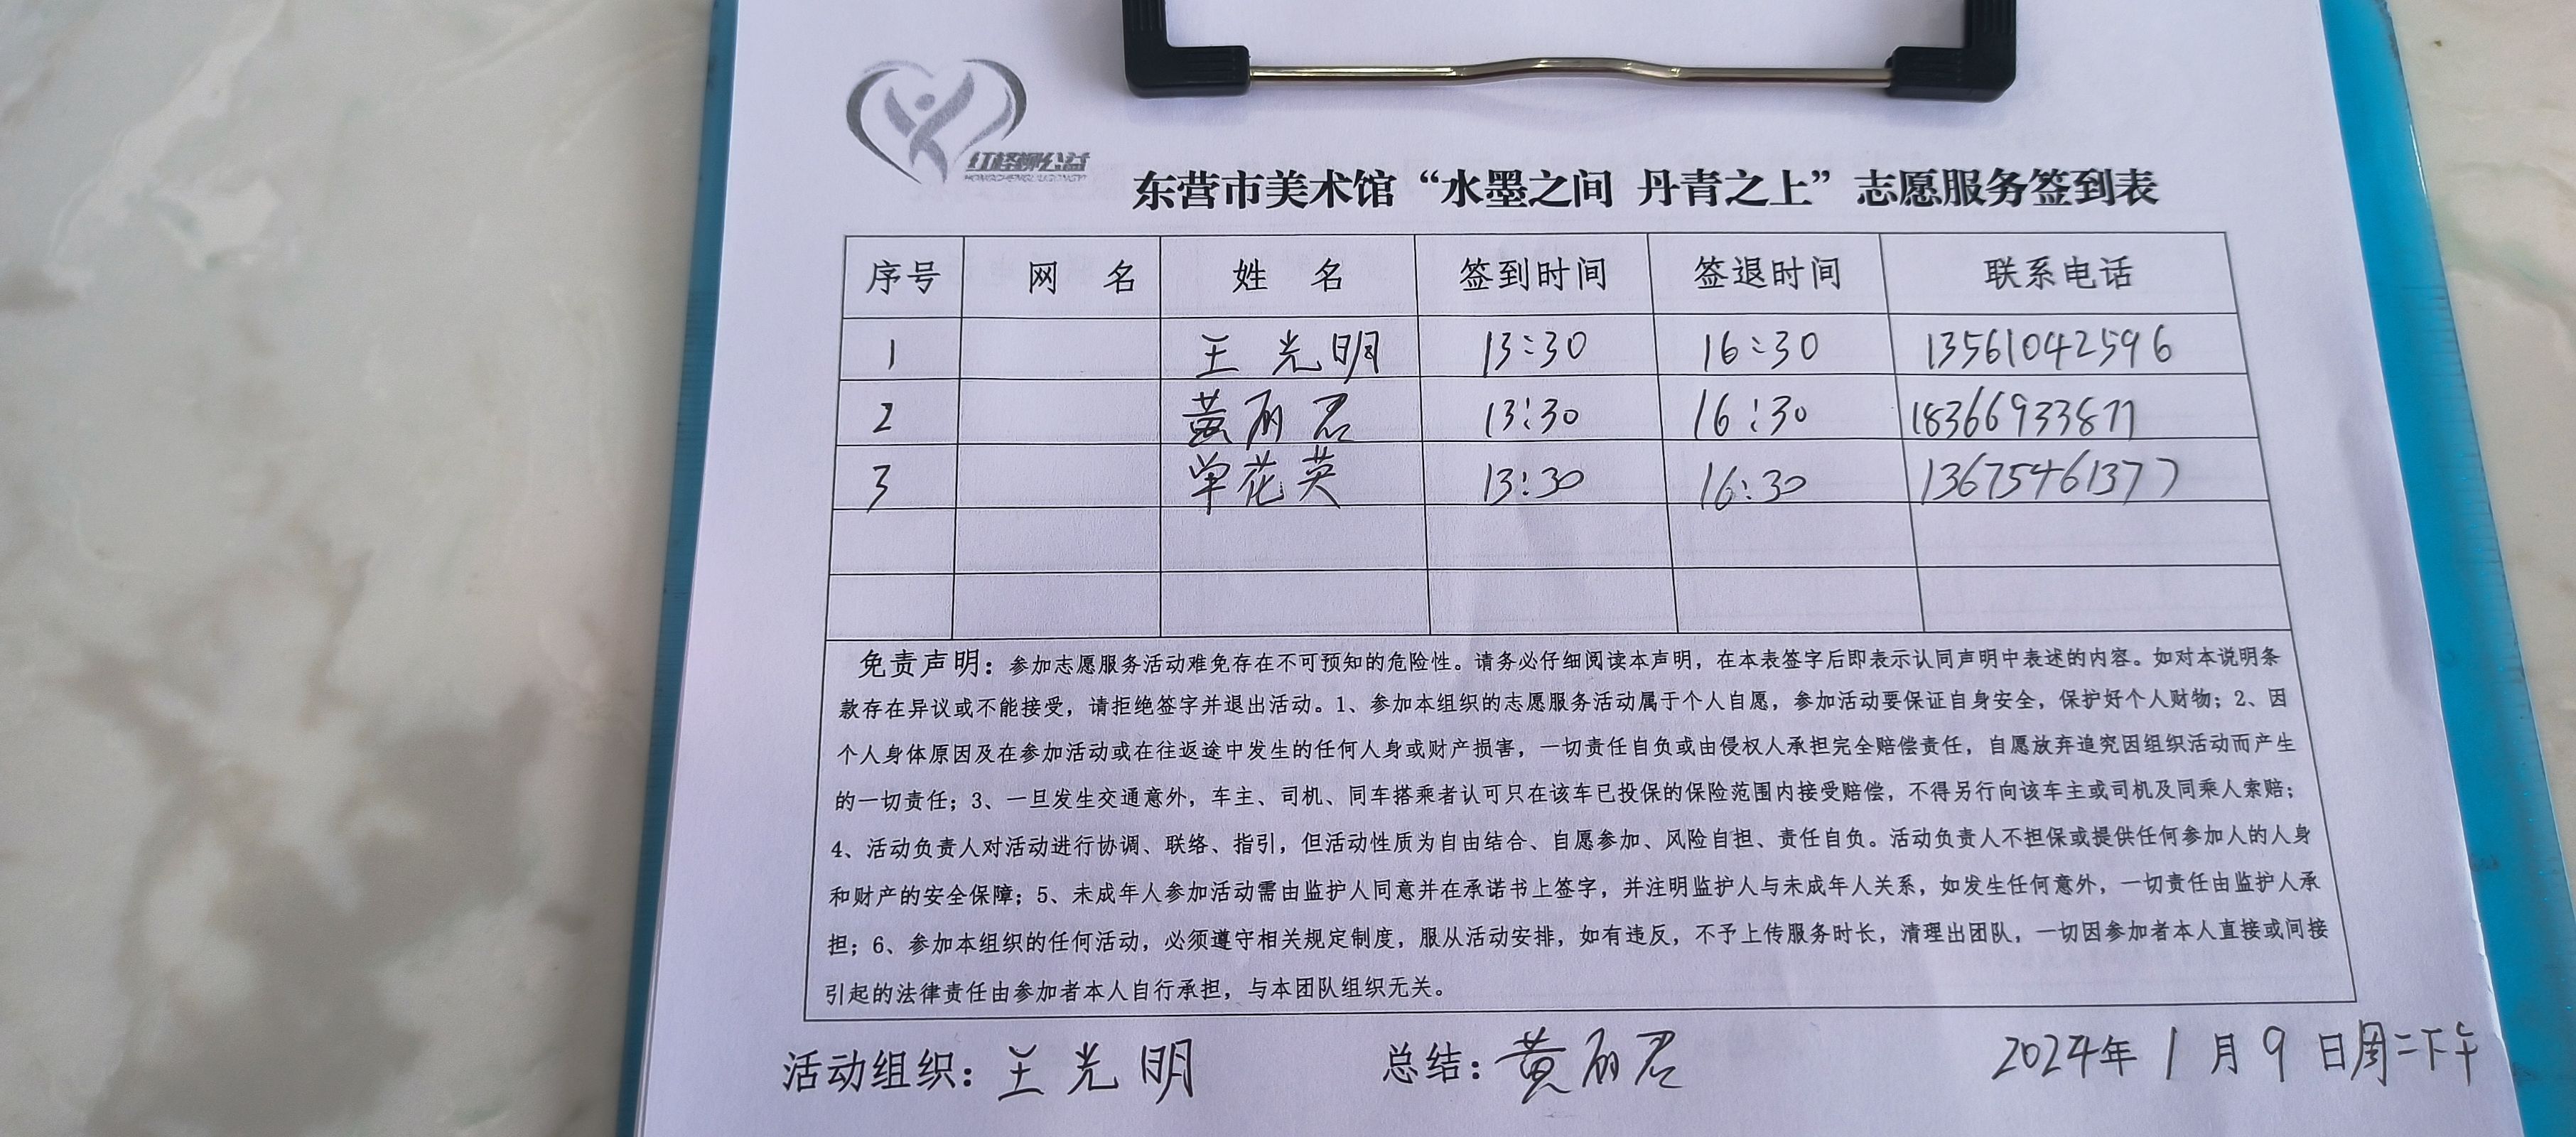 红柽柳公益
HONGCHENGLIUGONGYI
东营市美术馆“水墨之间 丹青之上”志愿服务签到表
序号 网 名 姓 名 签到时间 签退时间 联系电话
1 王光明 13:30 16:30 13561042596
2 黄丽君 13:30 16:30 18366933877
3 单花英 13:30 16:30 13675461377
免责声明：参加志愿服务活动难免存在不可预知的危险性。请务必仔细阅读本声明，在本表签字后即表示认同声明中表述的内容。如对本说明条
款存在异议或不能接受，请拒绝签字并退出活动。1、参加本组织的志愿服务活动属于个人自愿，参加活动要保证自身安全，保护好个人财物；2、因
个人身体原因及在参加活动或在往返途中发生的任何人身或财产损害，一切责任自负或由侵权人承担完全赔偿责任，自愿放弃追究因组织活动而产生
的一切责任；3、一旦发生交通意外，车主、司机、同车搭乘者认可只在该车已投保的保险范围内接受赔偿，不得另行向该车主或司机及同乘人索赔；
4、活动负责人对活动进行协调、联络、指引，但活动性质为自由结合、自愿参加、风险自担、责任自负。活动负责人不担保或提供任何参加人的人身
和财产的安全保障；5、未成年人参加活动需由监护人同意并在承诺书上签字，并注明监护人与未成年人关系，如发生任何意外，一切责任由监护人承
担；6、参加本组织的任何活动，必须遵守相关规定制度，服从活动安排，如有违反，不予上传服务时长，清理出团队，一切因参加者本人直接或间接
引起的法律责任由参加者本人自行承担，与本团队组织无关。
活动组织：王光明 总结：黄丽君 2024年1月9日周二下午